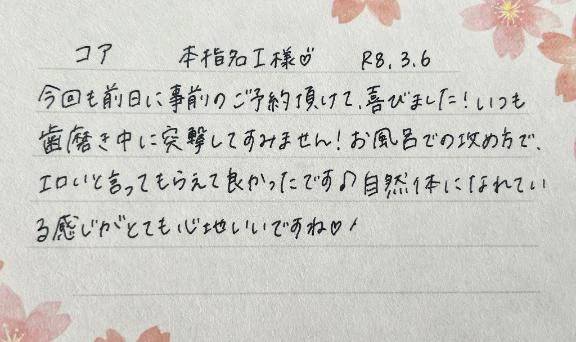 コア 本指名I様♡ R8.3.6
今回も前日に事前のご予約頂けて、喜びました!いつも
歯磨き中に突撃してすみません!お風呂での攻め方で、
エロいと言ってもらえて良かったです♪自然体になれてい
る感じがとても心地いいですね♡